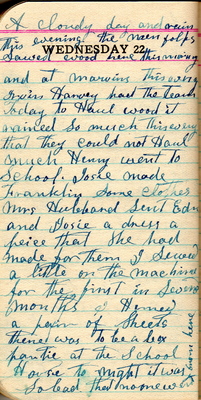 A Cloudy day and rain
this evening the men folks
WEDNESDAY 22
Sawed wood here this morning
and at marvins this evening
Irvin Harvey had the team
today to Haul wood it
rained So much this evening
that they could not Haul
much Henry went to
School. Josie made
Franklin Some clothes
Mrs Hubbard Sent Edna
and Josie a dress a
peice that She had
made for them I Sewed
a little on the machine
for the first in Several
months I Hemed
a pair of Sheets
there was to be a box
partie at the School
House to night it was
So bad that no one went
from here